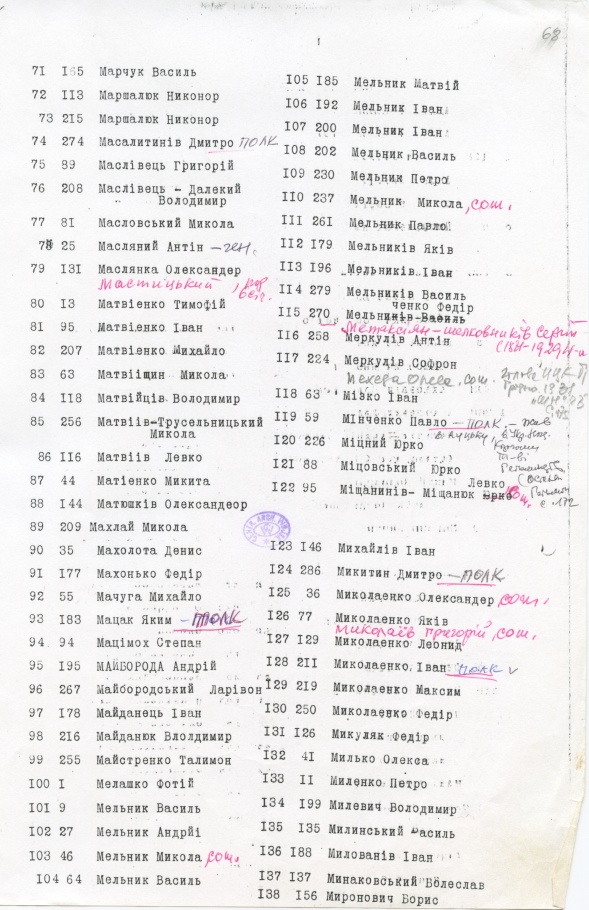 68
71 I65 Марчук Василь
72 II3 Маршалюк Никонор
73 215 Маршалюк Никонор
74 274 Масалитинів Дмитро ПОЛК
75 89 Маслівець Григорій
76 208 Маслівець - Далекий
Володимир
77 8I Масловський Микола
78 25 Масляний Антін – ген.
79 I3I Маслянка Олександер
Мастицький
80 I3 Матвіенко Тимофій
81 95 Матвіенко Іван
82 207 Матвіенко Михайло
83 63 Матвіищин Микола
84 II8 Матвійців Володимир
85 256 Матвіів-Трусельницький
Микола
86 II6 Матвіів Левко
87 44 Матіенко Микита
88 I44 Матюшків Олександеор
89 209 Махлай Микола
90 35 Махолота Денис
9I I77 Махонько Федір
92 55 Мачуга Михайло
93 I83 Мацак Яким – ПОЛК
94 94 Мацімох Степан
95 I95 МАЙБОРОДА Андрій
96 267 Майбородський Ларівон
97 I78 Майданець Іван
98 216 Майданюк Влолдимир
99 255 Майстренко Талимон
I00 I Мелашко Фотій
I0I 9 Мельник Василь
I02 27 Мельник Андрйі
I03 46 Мельник Микола сот.
I04 64 Мельник Василь
I05 I85 Мельник Матвій
I06 I92 Мельник Іван
I07 200 Мельник Іван
I08 202 Мельник Василь
I09 230 Мельник Петро
II0 237 Мельник Микола, сот.
III 26I Мельник Павло
II2 I79 Мельників Яків
II3 I96 Мельників Іван
II4 279 Мельників Василь
ченко Федір
II5 270 Мельників Василь
Метаксіян-Шелковників Сергій
II6 258 Меркулів Антін
II7 224 Меркулів Софрон
Мехеда Олекса, сот.
II8 63 Мізко Іван
II9 59 Мінченко Павло – полк. – жив
в Луцьку
I20 226 Міщий Юрко
I2I 88 Міцовський Юрко
Левко
I22 95 Міщанинів- Міщанюк Юрко сот.
I23 I46 Михайлів Іван
I24 286 Микитин Дмитро – ПОЛК
I25 36 Миколаенко Олександер сот.
I26 77 Миколаенко Яків
Миколаєв Григорій, сот.
I27 I29 Миколаенко Леонид
I28 2II Миколаенко Іван ПОЛК
I29 219 Миколаенко Максим
I30 250 Миколаенко Федір
I3I I26 Микуляк Федір
I32 4I Милько Олекса
I33 II Миленко Петро
I34 I99 Милевич Володимир
I35 I35 Милинський Василь
I36 I88 Милованів Іван
I37 I37 Минаковський Болеслав
I38 I56 Миронович Борис